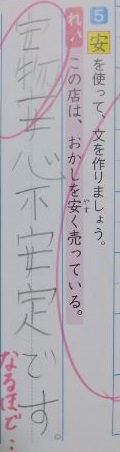 5 安を使って、文を作りましょう。
れい この店は、おかしを安く売っている。
やす
心不安定です。
なるほど…